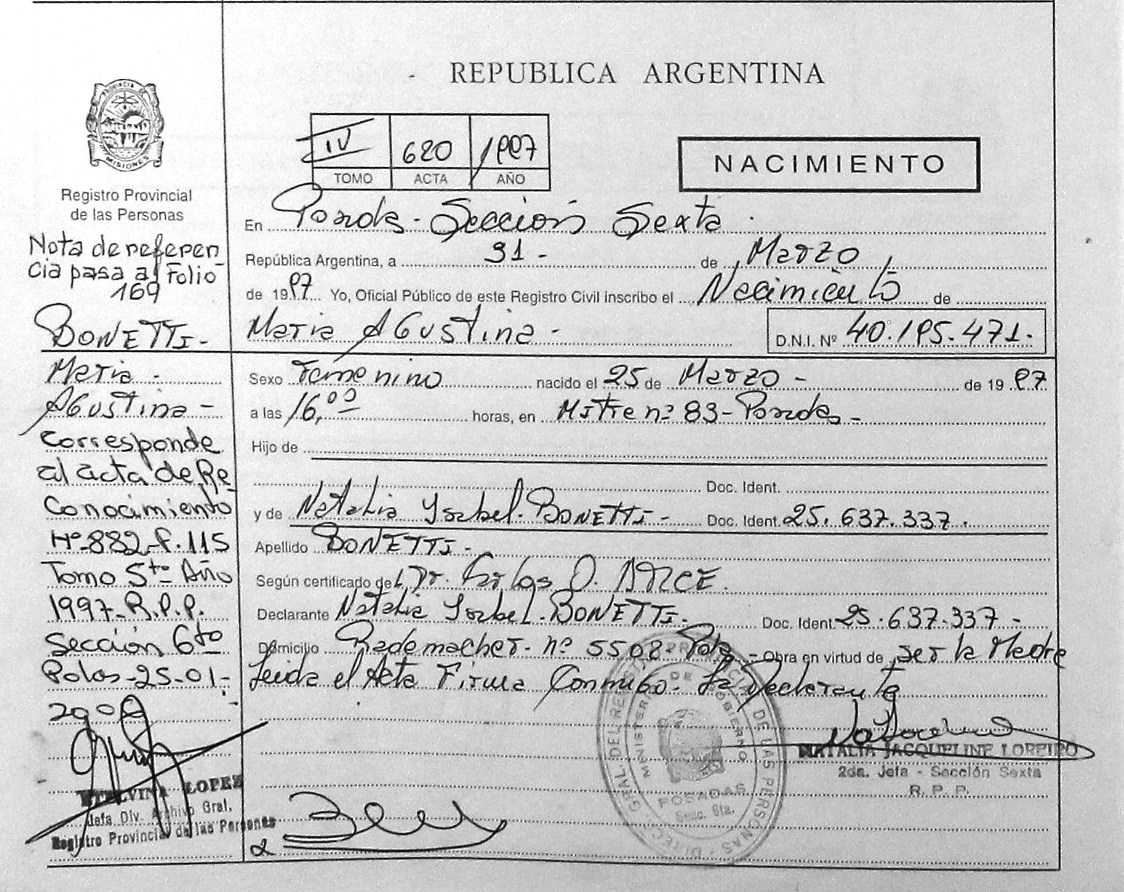 REPUBLICA ARGENTINA
PROVINCIA DE
MISIONES
Registro Provincial
de las Personas
IV 620 1997
TOMO ACTA AÑO
NACIMIENTO
En Posadas - Sección Sexta
República Argentina, a 31 - de Marzo
de 1997 Yo, Oficial Público de este Registro Civil inscribo el Nacimiento de
Maria Agustina -
D.N.I. Nº 40.195.471.
Sexo Femenino nacido el 25 de Marzo - de 1997
a las 16,00 horas, en Mitre nº 83 - Posadas -
Hijo de
Doc. Ident.
y de Natalia Ysabel BONETTI - Doc. Ident. 25.637.337.
Apellido BONETTI -
Según certificado de L Dr. Carlos O. ARCE.
Declarante Natalia Ysabel BONETTI. Doc. Ident. 25.637.337 -
Domicilio Rademacher nº 5508 Pdas - Obra en virtud de ser la Madre
Leida el Acta Firma Conmigo - La Declarante
Nota de referen
cia pasa al Folio
169
BONETTI -
Maria -
Agustina -
Corresponde
al acta de Re
Conocimiento
Nº 882 - F. 115
Tomo 5to Año
1997 - R.P.P.
Sección 6to
Pdas - 25-01-
ETELVINA LOPEZ
Jefa Div. Archivo Gral.
Registro Provincial de las Personas
DIRECC. GRAL DEL REGISTRO PROVINCIAL DE LAS PERSONAS
MINISTERIO DE GOBIERNO
POSADAS
Secc. 6ta.
NATALIA JACQUELINE LOREIRO
2da. Jefa - Sección Sexta
R. P. P.